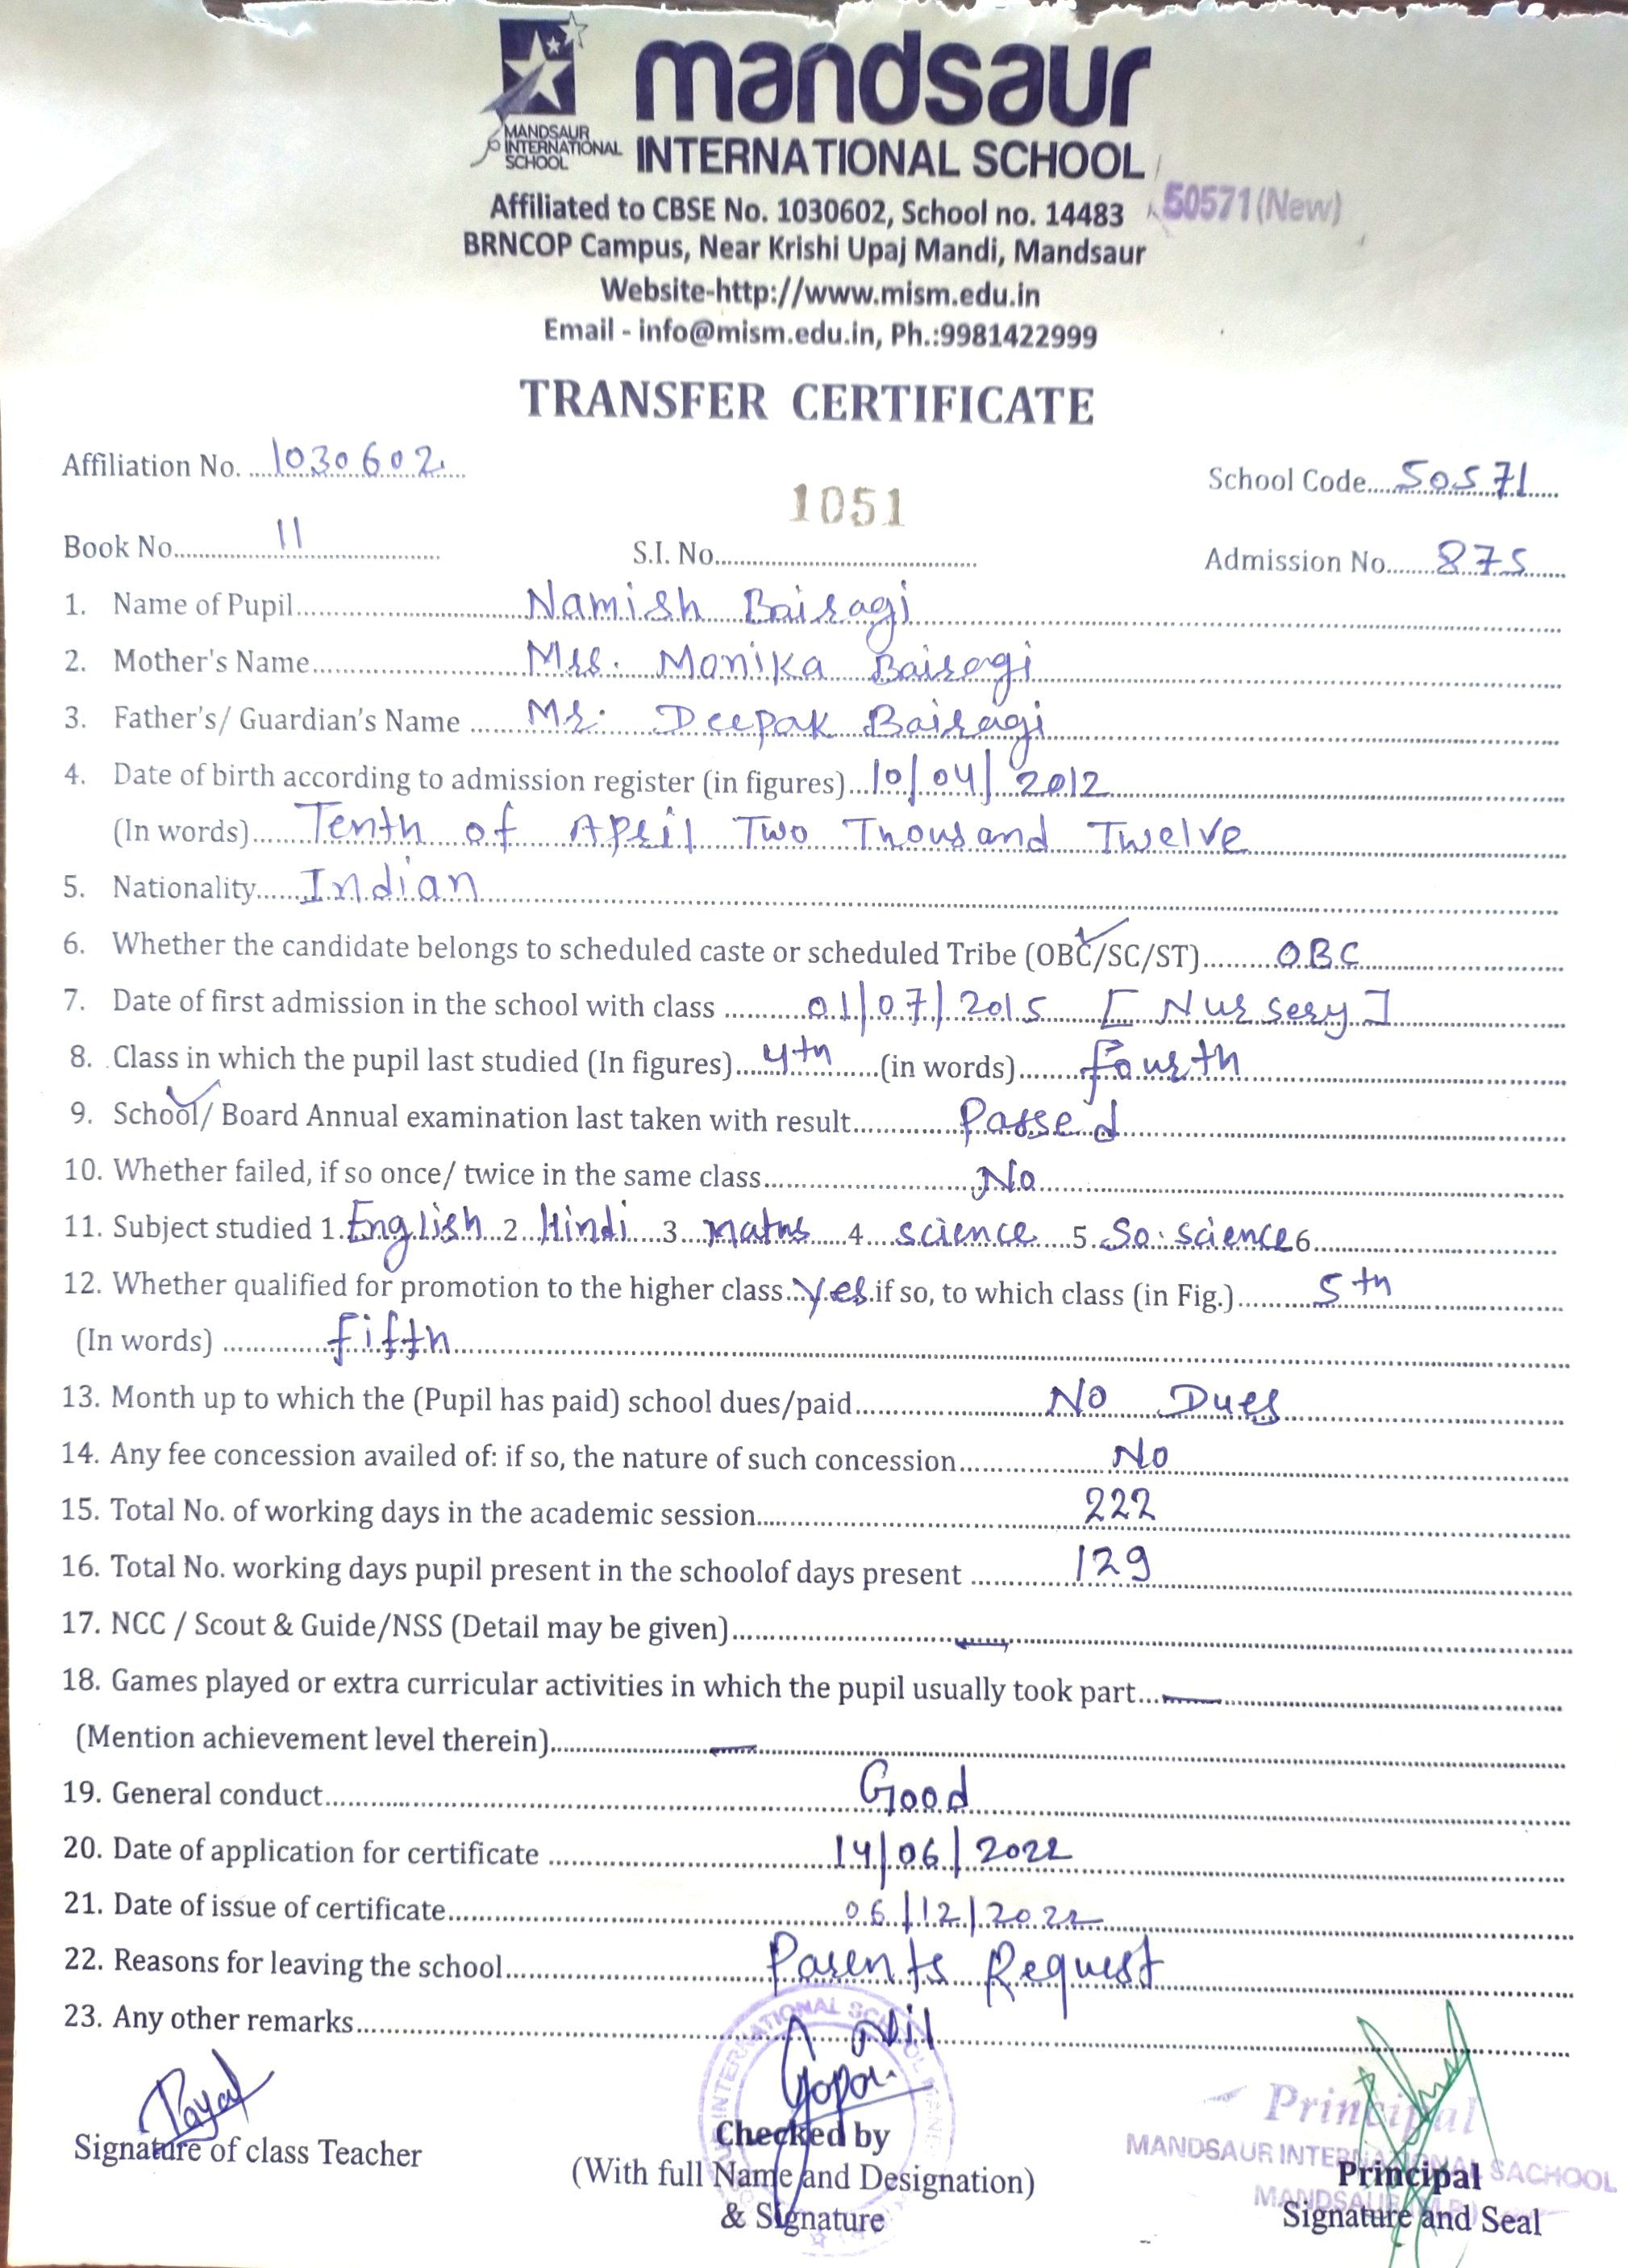 MANDSAUR
INTERNATIONAL
SCHOOL
mandsaur
INTERNATIONAL SCHOOL
Affiliated to CBSE No. 1030602, School no. 14483 50571(New)
BRNCOP Campus, Near Krishi Upaj Mandi, Mandsaur
Website-http://www.mism.edu.in
Email - info@mism.edu.in, Ph.:9981422999
TRANSFER CERTIFICATE
Affiliation No. 1030602 School Code 50571
1051
Book No. 11 S.I. No. Admission No. 875
1. Name of Pupil Namish Bairagi
2. Mother's Name Mrs. Monika Bairagi
3. Father's/ Guardian's Name Mr. Deepak Bairagi
4. Date of birth according to admission register (in figures) 10/04/2012
(In words) Tenth of April Two Thousand Twelve
5. Nationality Indian
6. Whether the candidate belongs to scheduled caste or scheduled Tribe (OBC/SC/ST) OBC
7. Date of first admission in the school with class 01/07/2015 [Nursery]
8. Class in which the pupil last studied (In figures) 4th (in words) fourth
9. School/ Board Annual examination last taken with result Passed
10. Whether failed, if so once/ twice in the same class No
11. Subject studied 1. English 2. Hindi 3. maths 4. science 5. So. science 6.
12. Whether qualified for promotion to the higher class Yes if so, to which class (in Fig.) 5th
(In words) fifth
13. Month up to which the (Pupil has paid) school dues/paid No Dues
14. Any fee concession availed of: if so, the nature of such concession No
15. Total No. of working days in the academic session 222
16. Total No. working days pupil present in the schoolof days present 129
17. NCC / Scout & Guide/NSS (Detail may be given)
18. Games played or extra curricular activities in which the pupil usually took part
(Mention achievement level therein)
19. General conduct Good
20. Date of application for certificate 14/06/2022
21. Date of issue of certificate 06/12/2022
22. Reasons for leaving the school Parents Request
23. Any other remarks Nil
Payal
Signature of class Teacher
Checked by
(With full Name and Designation)
& Signature
Principal
MANDSAUR INTERNATIONAL SACHOOL
MANDSAUR (M.P.)
Principal
Signature and Seal